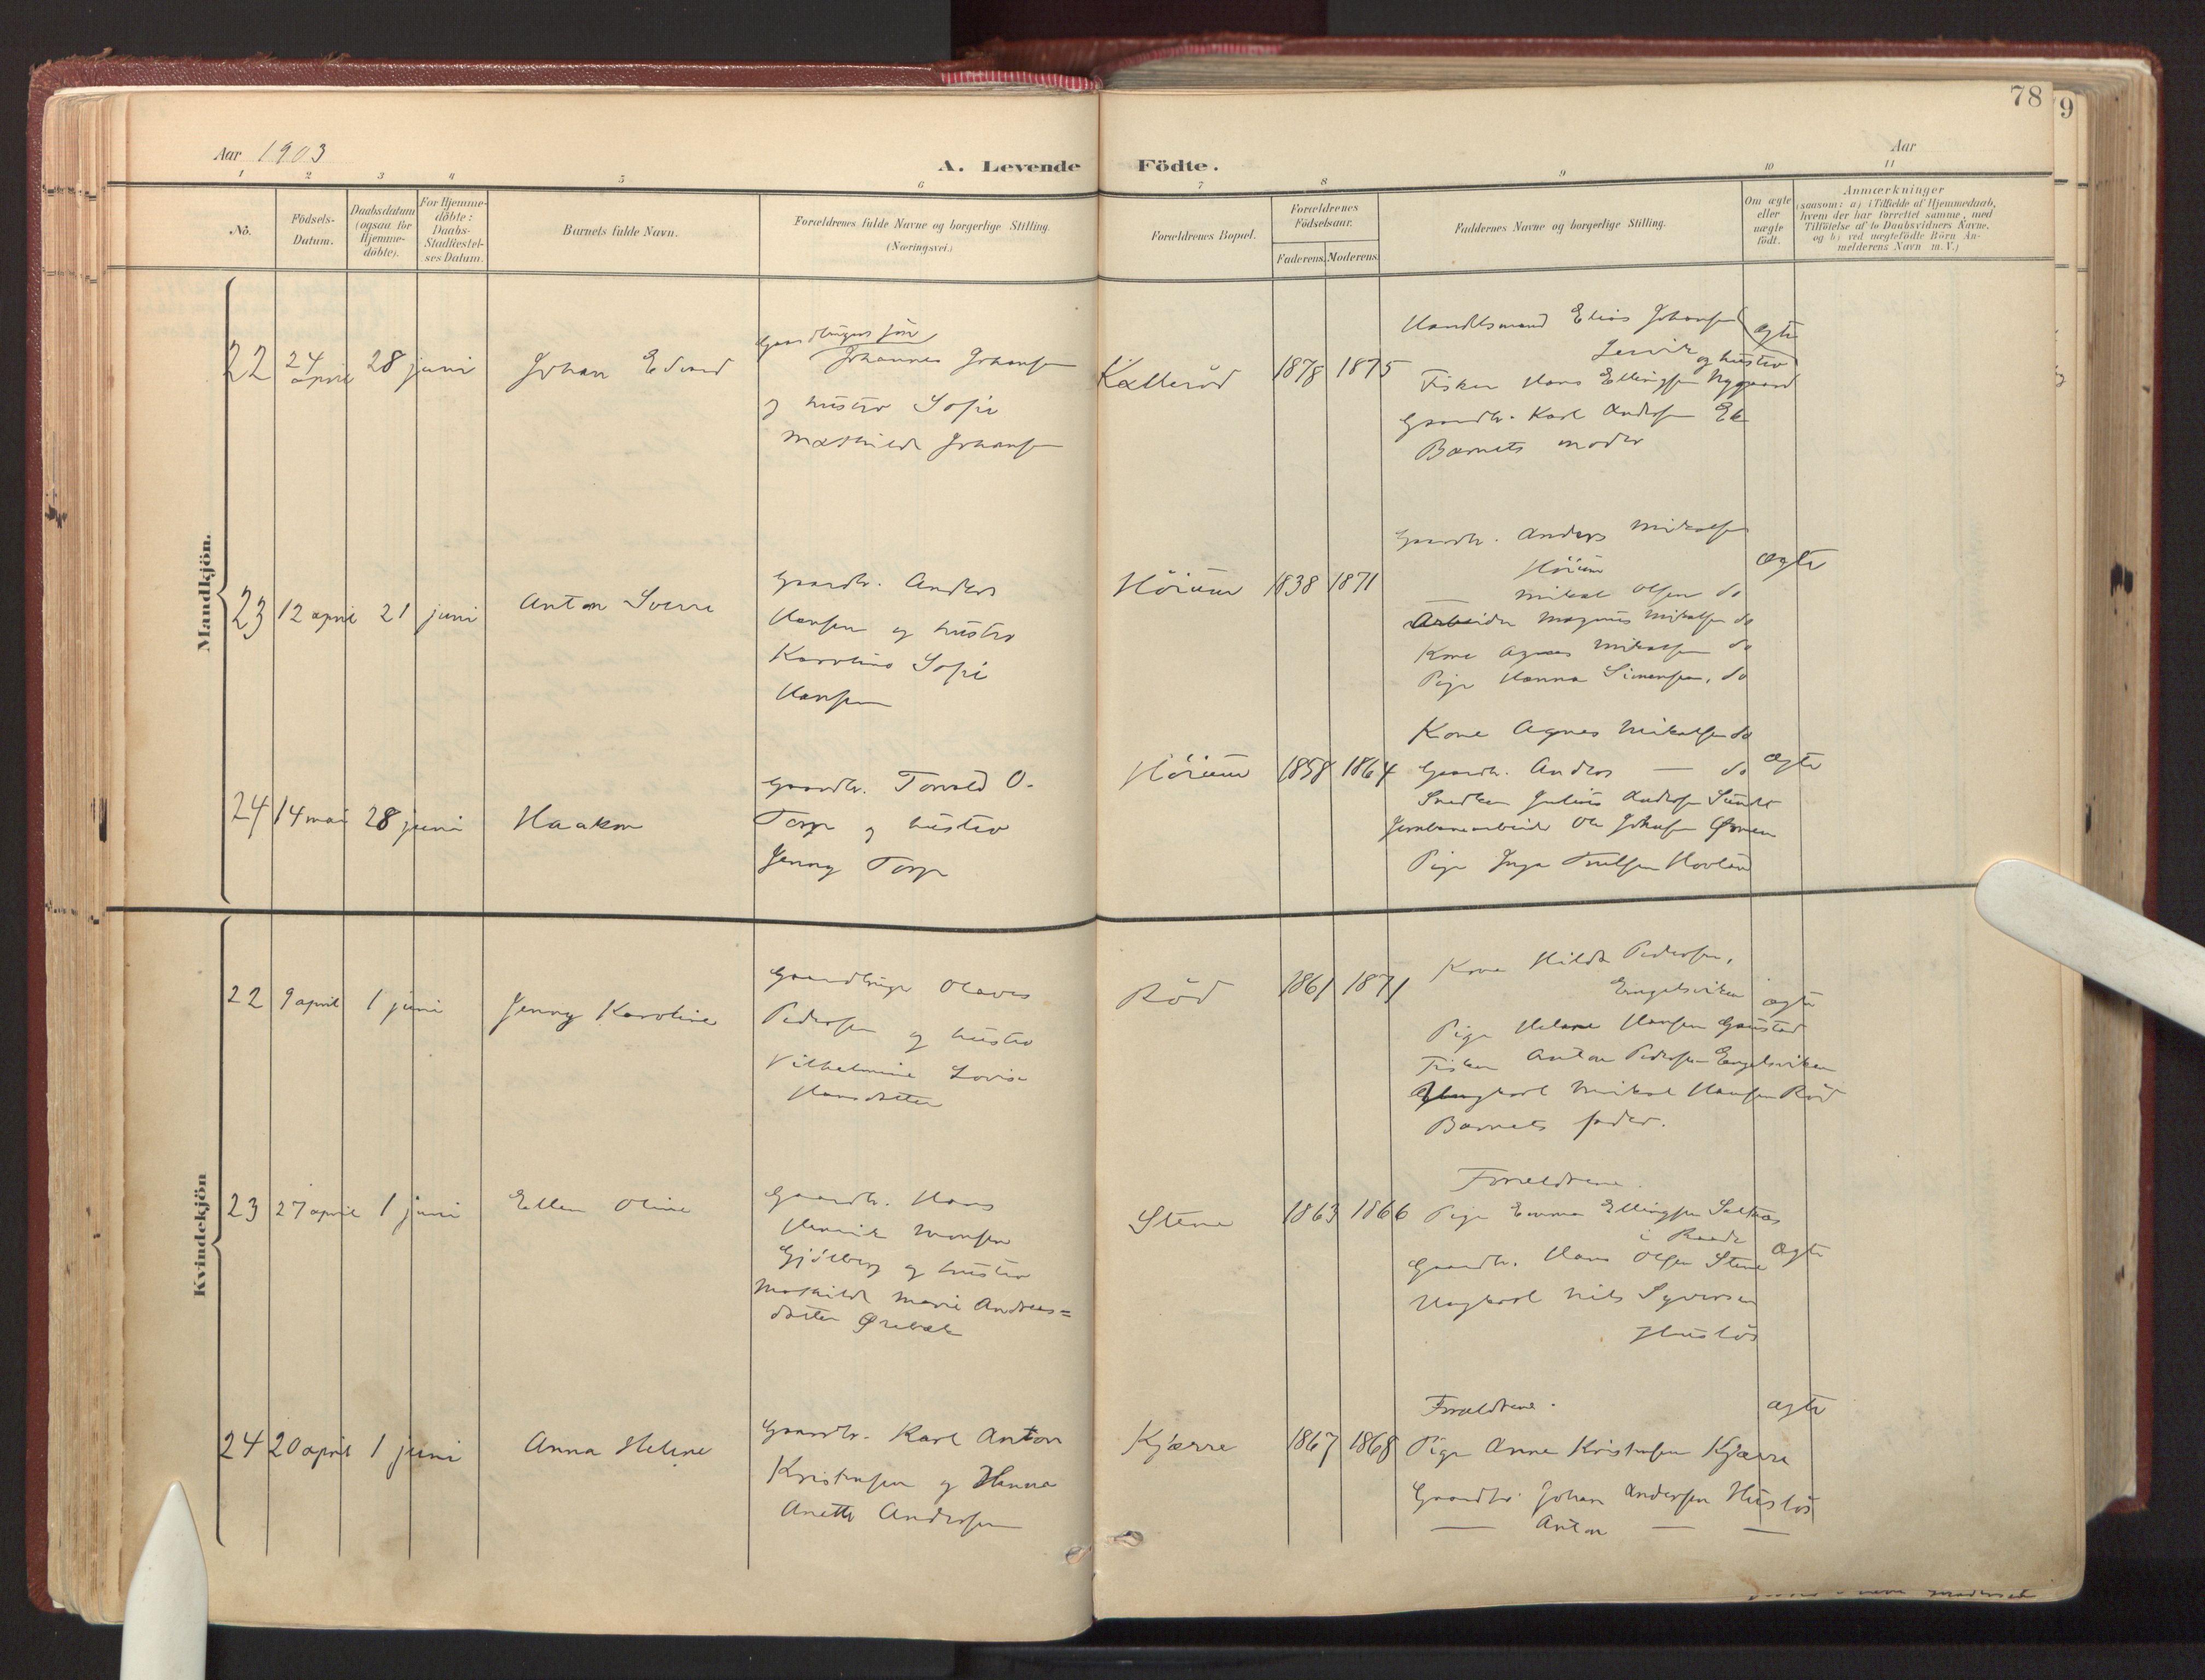 78
9
Aar 1903
A. Levende Födte.
Aar
1 2 3 4 5 6 7 8 9 10 11
No.
Födsels-
Datum.
Daabsdatum
(ogsaa for
Hjemme-
döbte).
For Hjemme-
döbte:
Daabs-
Stadfæstel-
ses Datum.
Barnets fulde Navn.
Forældrenes fulde Navne og borgerlige Stilling.
(Næringsvei.)
Forældrenes Bopæl.
Forældrenes
Födselsaar.
Faderens. Moderens.
Faddernes Navne og borgerlige Stilling.
Om ægte
eller
uægte
födt.
Anmærkninger
(saasom: a) i Tilfælde af Hjemmedaab,
hvem der har forrettet samme, med
Tilföielse af to Daabsvidners Navne,
og b) ved uægtefödte Börn An-
melderens Navn m. V.)
Mandkjön.
22
24
april
28 juni
Johan Edvard
Johannes Johansen
og hustro Sofie
Mathilde Johansen
Kalleröd
1878 1875
Handelsmand Elias Johansen
Lervik og hustro
Fisker Hans Ellingsen Nygaard
Gaardbr. Karl Andersen Ek
Barnets moder
ægte
23
12 april
21 juni
Anton Sverre
Gaardbr. Anders
Hansen og hustro
Karoline Sofie
Hansen
Höium
1838 1871
Gaardbr. Anders Mikalsen
Höium
— Mikal Olsen do
Arbeider Magnus Mikalsen do
Kone Agnes Mikalsen do
Pige Hanna Simensen, do
ægte
24
14 mai
28 juni
Haakon
Gaardbr. Torvald O.
Torp og hustro
Jenny Torp
Höium
1858 1864
Kone Agnes Mikalsen do
Gaardbr. Anders — do
Snedker Julius Andersen
Jernbanearbeider Ole Johansen
Pige Inga Hovland
ægte
Kvindekjön
22
9 april
1 juni
Jenny Karoline
Gaardbruger Olaves
Pedersen og hustro
Vilhelmine Lovise
Hansdatter
Röd
1861 1871
Kone Hilda Pedersen,
Engelsviken
Pige Helene Hansen Gaustad
Fisker Anton Pedersen Engelsviken
Ungkarl Mikal Hansen Röd
Barnets fader.
ægte
23
27 april
1 juni
Ellen Oline
Gaardbr. Hans
Henrik Monsen
Gjölberg og hustro
Mathilde Marie Andreas=
datter Ørebæk
Stene
1863 1866
Forældrene.
Pige Emma Ellingsen Saltnes
i Raade
Gaardbr. Hans Olsen Stene
Ungkarl Nils Syversen
Huslös
ægte
24
20 april
1 juni
Anna Helene
Gaardbr. Karl Anton
Kristensen og Hanna
Anette Andersen
Kjærre
1867 1868
Forældrene.
Pige Anna Kristensen Kjærre
Gaardbr. Johan Andersen Huslös
— Anton — —
ægte